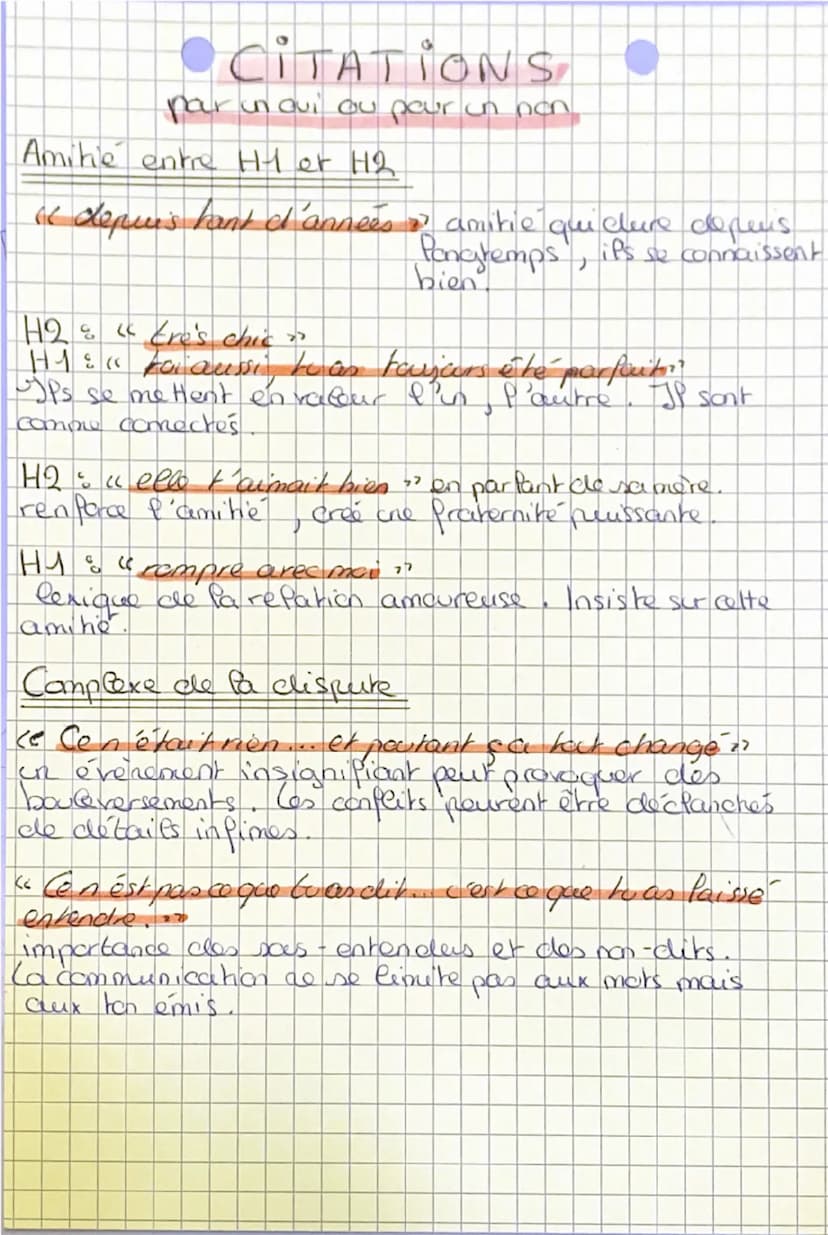 CiTATiONS
par un oui ou pour un non
Amitié entre H1 et H2
" depuis tant d'années " amitié qui dure depuis
longtemps, ils se connaissent
bien.
H2 : " très chic "
H1 : " toi aussi, tu as toujours été parfait "
Ils se mettent en valeur l'un, l'autre. Il sont
comme connectés.
H2 : " elle t'aimait bien " en parlant de sa mère.
renforce l'amitié, créé une fraternité puissante.
H1 : " rompre avec moi "
lexique de la relation amoureuse. Insiste sur cette
amitié.
Complexe de la dispute
" Ce n'était rien... et pourtant ça a tout changé "
un évènement insignifiant peut provoquer des
bouleversements. Les conflits peuvent être déclanchés
de détails infimes.
" Ce n'est pas ce que tu as dit... c'est ce que tu as laissé
entendre. "
importance des sous-entendus et des non-dits.
La communication ne se limite pas aux mots mais
aux ton émis.